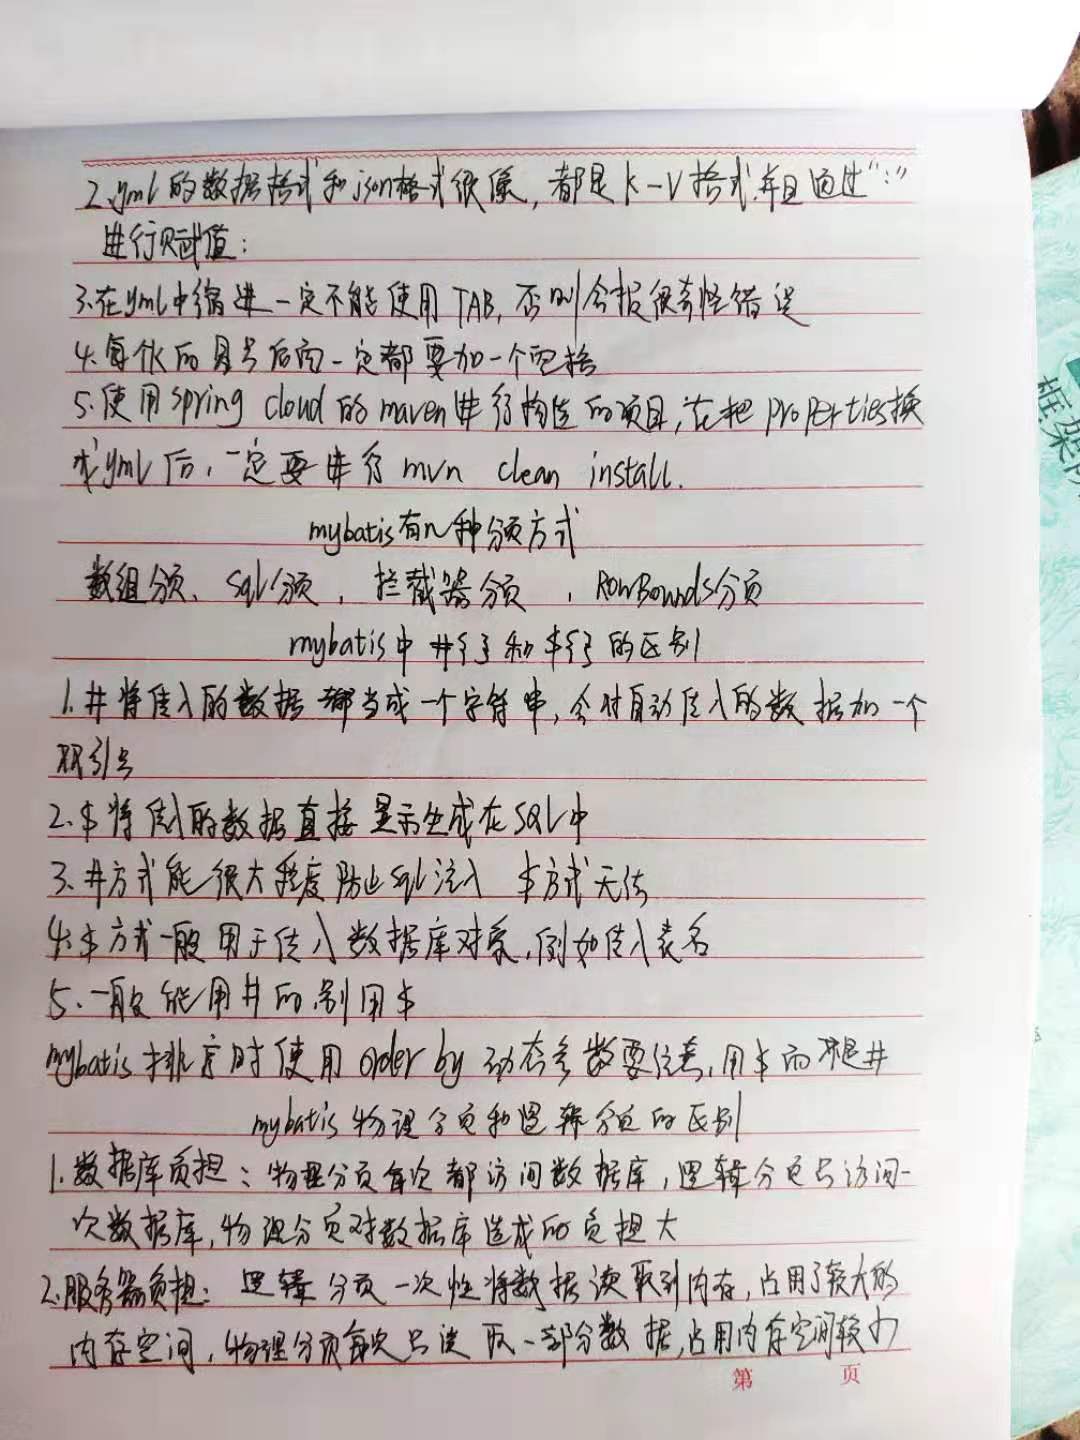 2.yml的数据格式和json格式很像，都是K-V格式，并且通过“：”
进行赋值：
3.在yml中缩进一定不能使用TAB，否则会报很奇怪错误
4.每个K的冒号后面一定都要加一个空格
5.使用spring cloud的maven进行构造的项目，在把properties换
成yml后，一定要进行mvn clean install.
mybatis有几种分页方式
数组分页、sql分页，拦截器分页，RowBounds分页
mybatis中#{}和${}的区别
1.#将传入的数据都当成一个字符串，会对自动传入的数据加一个
双引号
2.$将传入的数据直接显示生成在SQL中
3.#方式能很大程度防止sql注入 $方式无法
4.$方式一般用于传入数据库对象，例如传入表名
5.一般能用#的别用$
mybatis排序时使用order by动态参数要注意，用$而不是#
mybatis物理分页和逻辑分页的区别
1.数据库负担：物理分页每次都访问数据库，逻辑分页只访问一
次数据库，物理分页对数据库造成的负担大
2.服务器负担：逻辑分页一次性将数据读取到内存，占用了较大的
内存空间，物理分页每次只读取一部分数据，占用内存空间较小
第 页
框架